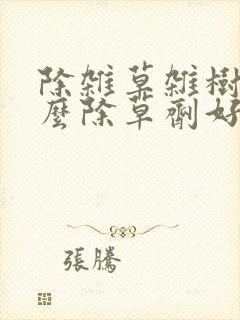 除雜草雜樹
麼除草劑好
張騰